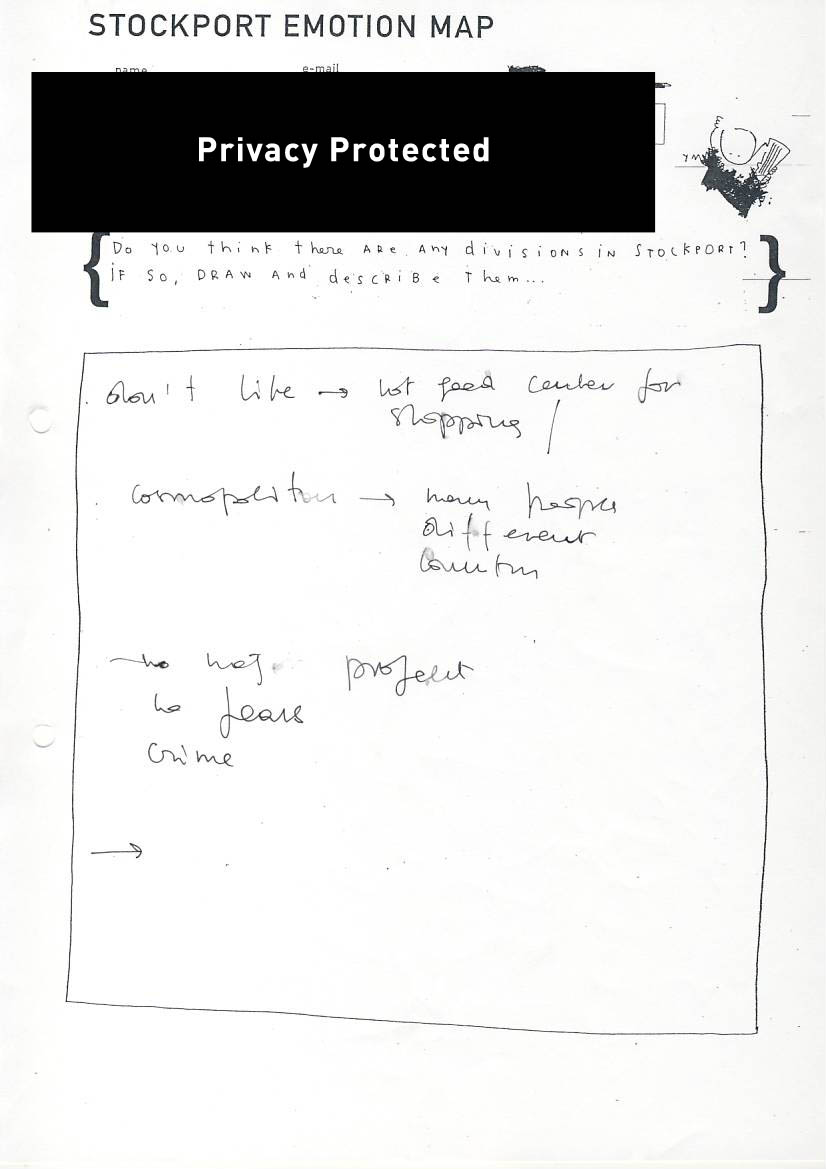 STOCKPORT EMOTION MAP
name e-mail
Privacy Protected
Do you think there are any divisions in Stockport?
if so, draw and describe them...
don't like → not good center for
shopping /
cosmopolitan → many people
different
no project
no fears
crime
→